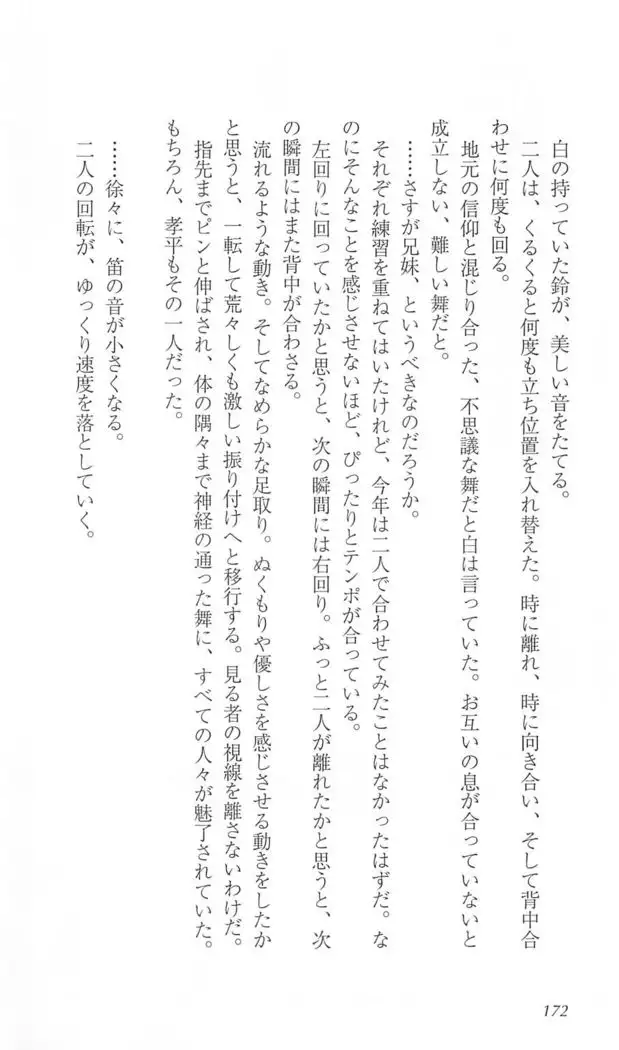 白の持っていた鈴が、美しい音をたてる。
二人は、くるくると何度も立ち位置を入れ替えた。時に離れ、時に向き合い、そして背中合
わせに何度も回る。
地元の信仰と混じり合った、不思議な舞だと白は言っていた。お互いの息が合っていないと
成立しない、難しい舞だと。
……さすが兄妹、というべきなのだろうか。
それぞれ練習を重ねてはいたけれど、今年は二人で合わせてみたことはなかったはずだ。な
のにそんなことを感じさせないほど、ぴったりとテンポが合っている。
左回りに回っていたかと思うと、次の瞬間には右回り。ふっと二人が離れたかと思うと、次
の瞬間にはまた背中が合わさる。
流れるような動き。そしてなめらかな足取り。ぬくもりや優しさを感じさせる動きをしたか
と思うと、一転して荒々しくも激しい振り付けへと移行する。見る者の視線を離さないわけだ。
指先までピンと伸ばされ、体の隅々まで神経の通った舞に、すべての人々が魅了されていた。
もちろん、孝平もその一人だった。
……徐々に、笛の音が小さくなる。
二人の回転が、ゆっくり速度を落としていく。
172